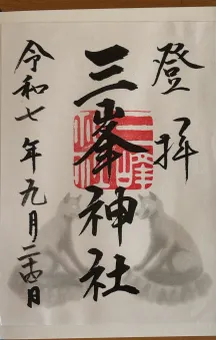 登拝
三峯神社
令和七年九月二十四日